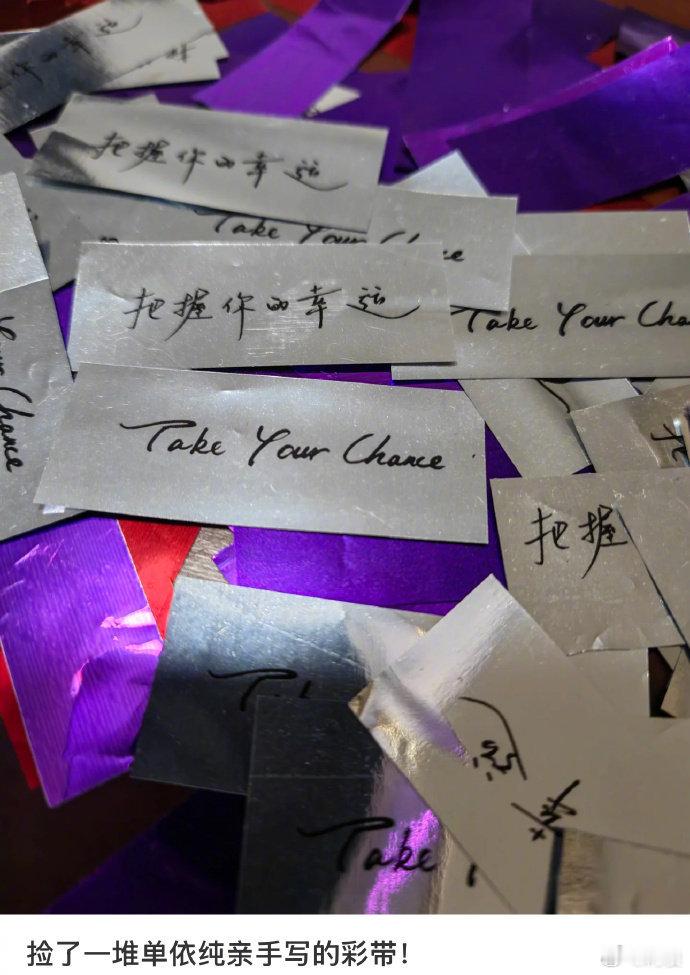 你的幸运
把握你的幸运
Take Your Chance
把握你的幸运
Take Your Cha
Your Chance
Take Your Chance
把握
Take
运
幸
捡了一堆单依纯亲手写的彩带!